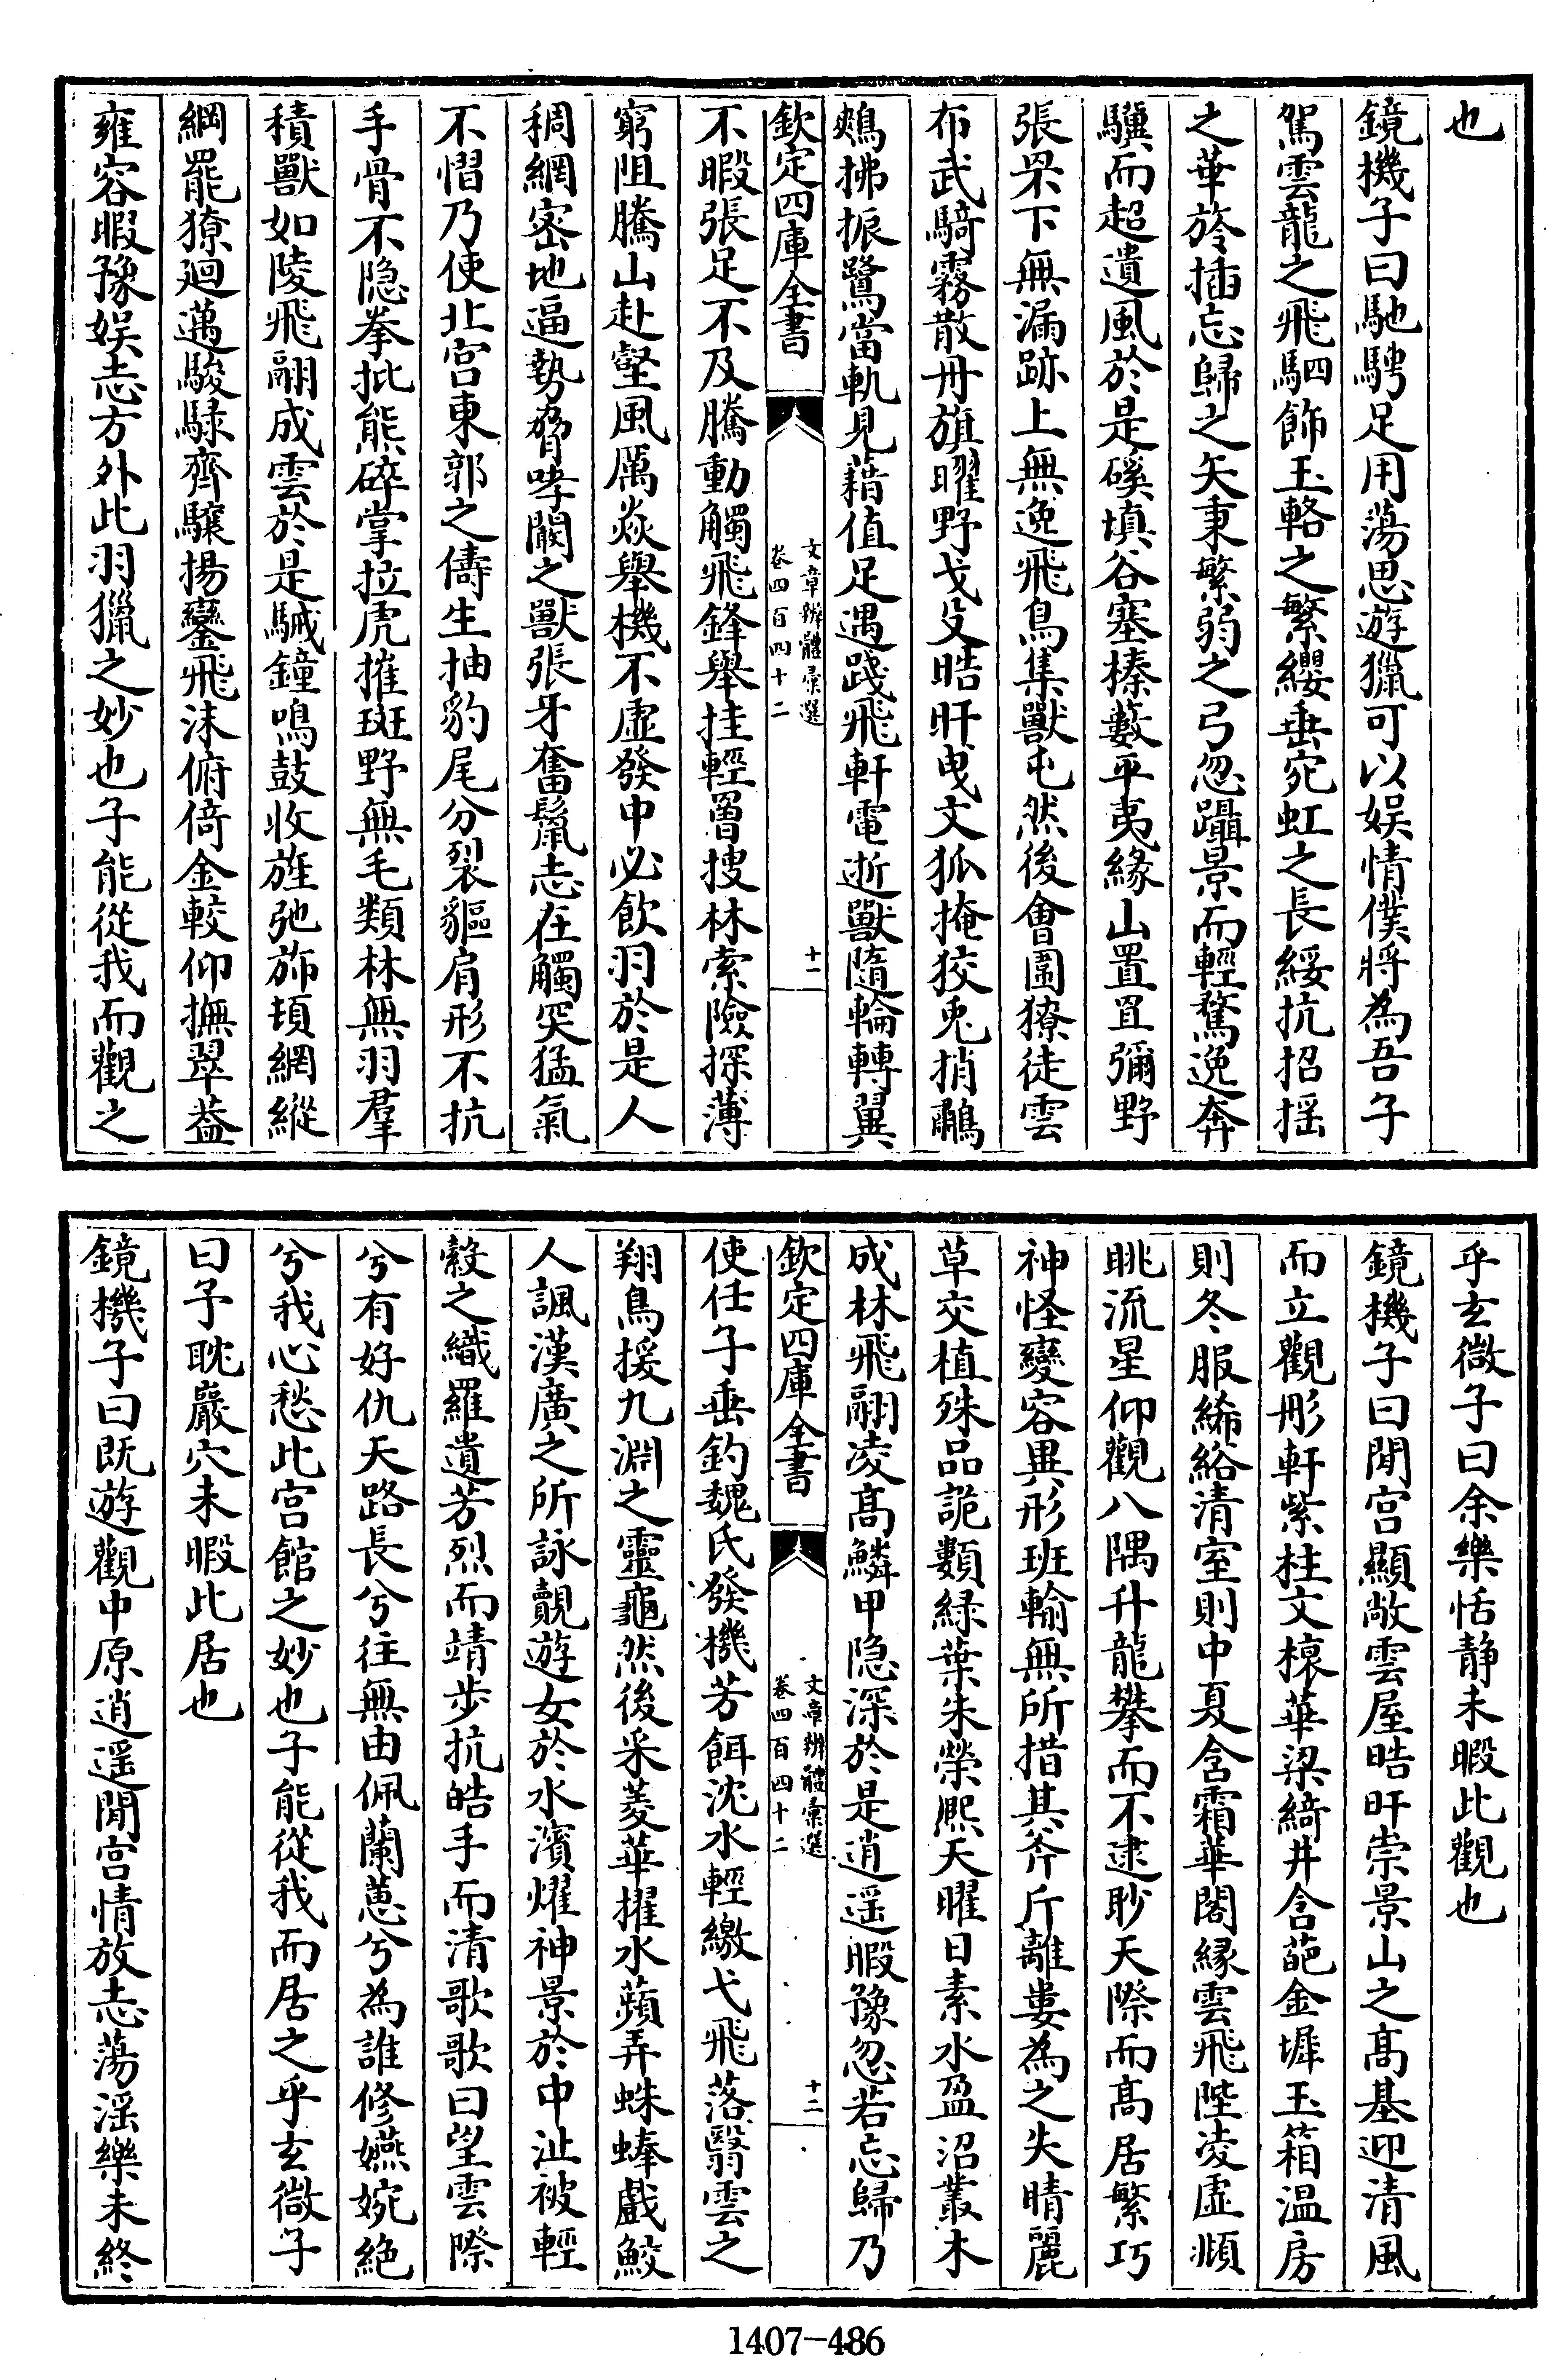 也
鏡機子曰馳騁足用蕩思遊獵可以娱情僕將為吾子
駕雲龍之飛駟飾玉輅之繁纓垂宛虹之長綏抗招揺
之華旍插忘歸之矢秉繁弱之弓忽躡景而輕騖逸奔
驥而超遺風於是磎填谷塞榛藪平夷緣山置罝彌野
張罘下無漏跡上無逸飛鳥集獸屯然後會圍獠徒雲
布武騎霧散丹旗曜野戈殳晧旰曳文狐掩狡兎捎鷫
鷞拂振鷺當軌見藉值足遇踐飛軒電逝獸隨輪轉翼
欽定四庫全書
文章辨體彙選
卷四百四十二
十一
不暇張足不及騰動觸飛鋒舉挂輕罾搜林索險探薄
窮阻騰山赴壑風厲焱舉機不虚發中必飲羽於是人
稠網宻地逼勢脅哮闞之獸張牙奮鬛志在觸突猛氣
不慴乃使北宫東郭之儔生抽豹尾分裂貙肩形不抗
手骨不隐拳批熊碎掌拉虎摧斑野無毛類林無羽羣
積獸如陵飛翮成雲於是駴鐘鳴鼓收旌弛斾頓網縱
綱罷獠廻邁駿騄齊驤揚鑾飛沫俯倚金較仰撫翠葢
雍容暇豫娱志方外此羽獵之妙也子能從我而觀之
乎玄微子曰余樂恬静未暇此觀也
鏡機子曰閒宫顯敞雲屋晧旰崇景山之髙基迎清風
而立觀彤軒紫柱文榱華梁綺井含葩金墀玉箱温房
則冬服絺綌清室則中夏含霜華閣緣雲飛陛凌虚頫
眺流星仰觀八隅升龍攀而不逮眇天際而髙居繁巧
神怪變容異形班輸無所措其斧斤離婁為之失睛麗
草交植殊品詭類緑葉朱榮熈天曜日素水盈沼叢木
成林飛翮凌髙鱗甲隐深於是逍遥暇豫忽若忘歸乃
欽定四庫全書
文章辨體彙選
卷四百四十二
十二
使任子垂釣魏氏發機芳餌沈水輕繳弋飛落翳雲之
翔鳥援九淵之靈龜然後采菱華擢水蘋弄蛛蜯戲鮫
人諷漢廣之所詠覿遊女於水濱燿神景於中沚被輕
縠之纎羅遺芳烈而靖步抗皓手而清歌歌曰望雲際
兮有好仇天路長兮往無由佩蘭蕙兮為誰修嬿婉絶
兮我心愁此宫館之妙也子能從我而居之乎玄微子
曰予耽巖穴未暇此居也
鏡機子曰既遊觀中原逍遥閒宫情放志蕩滛樂未終
1407-486